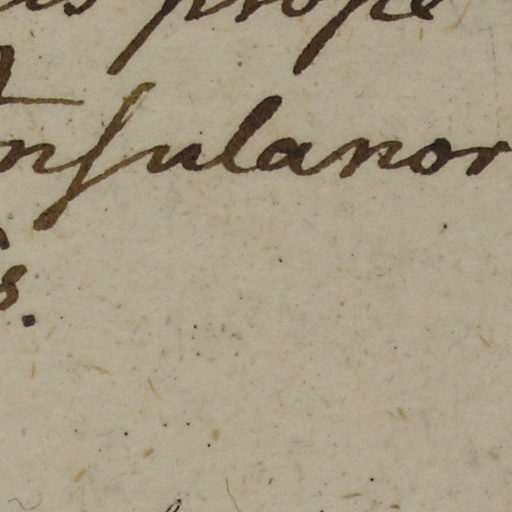 prope
nſulanor
s.